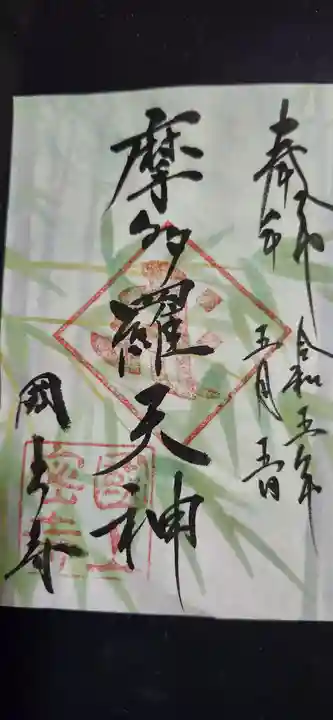 奉印
令和五年
五月五日
摩多羅天神
國上寺